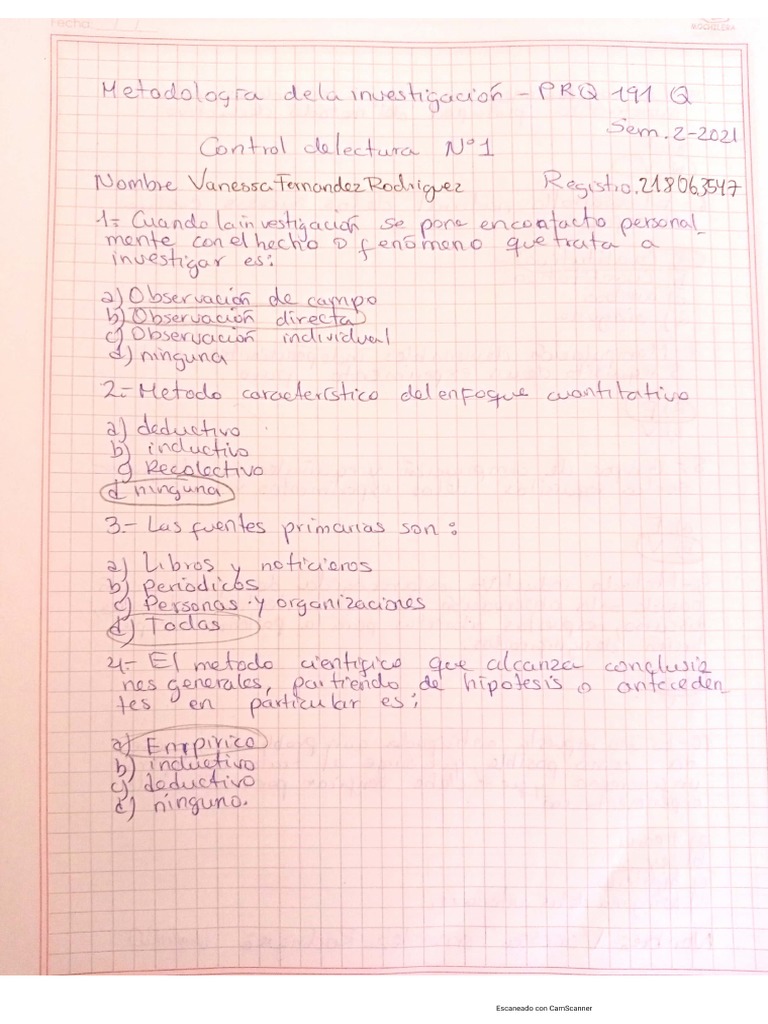 Fecha: / /
MOCHILERA
Metodologia dela investigación - PRQ 191 Q
Sem. 2-2021
Control delectura Nº1
Nombre Vanessa Fernandez Rodriguez Registro. 218063547
1= Cuando lainvestigación se pone encontacto personal_
mente con el hecho o fenómeno que trata a
investigar es:
a) Observación de campo
b) Observación directa
c) Observación individual
d) ninguna
2.- Metodo característico del enfoque cuantitativo
a) deductivo
b) inductivo
c) Recolectivo
d ninguna
3.- Las fuentes primarias son :
a) Libros y noticieros
b) Periodicos
c) Personas y organizaciones
d) Todas
4.- El metodo cientifico que alcanza conclusio
nes generales, partiendo de hipotesis o anteceden
tes en particular es:
a) Empirico
b) inductivo
c) deductivo
d) ninguno.
Escaneado con CamScanner